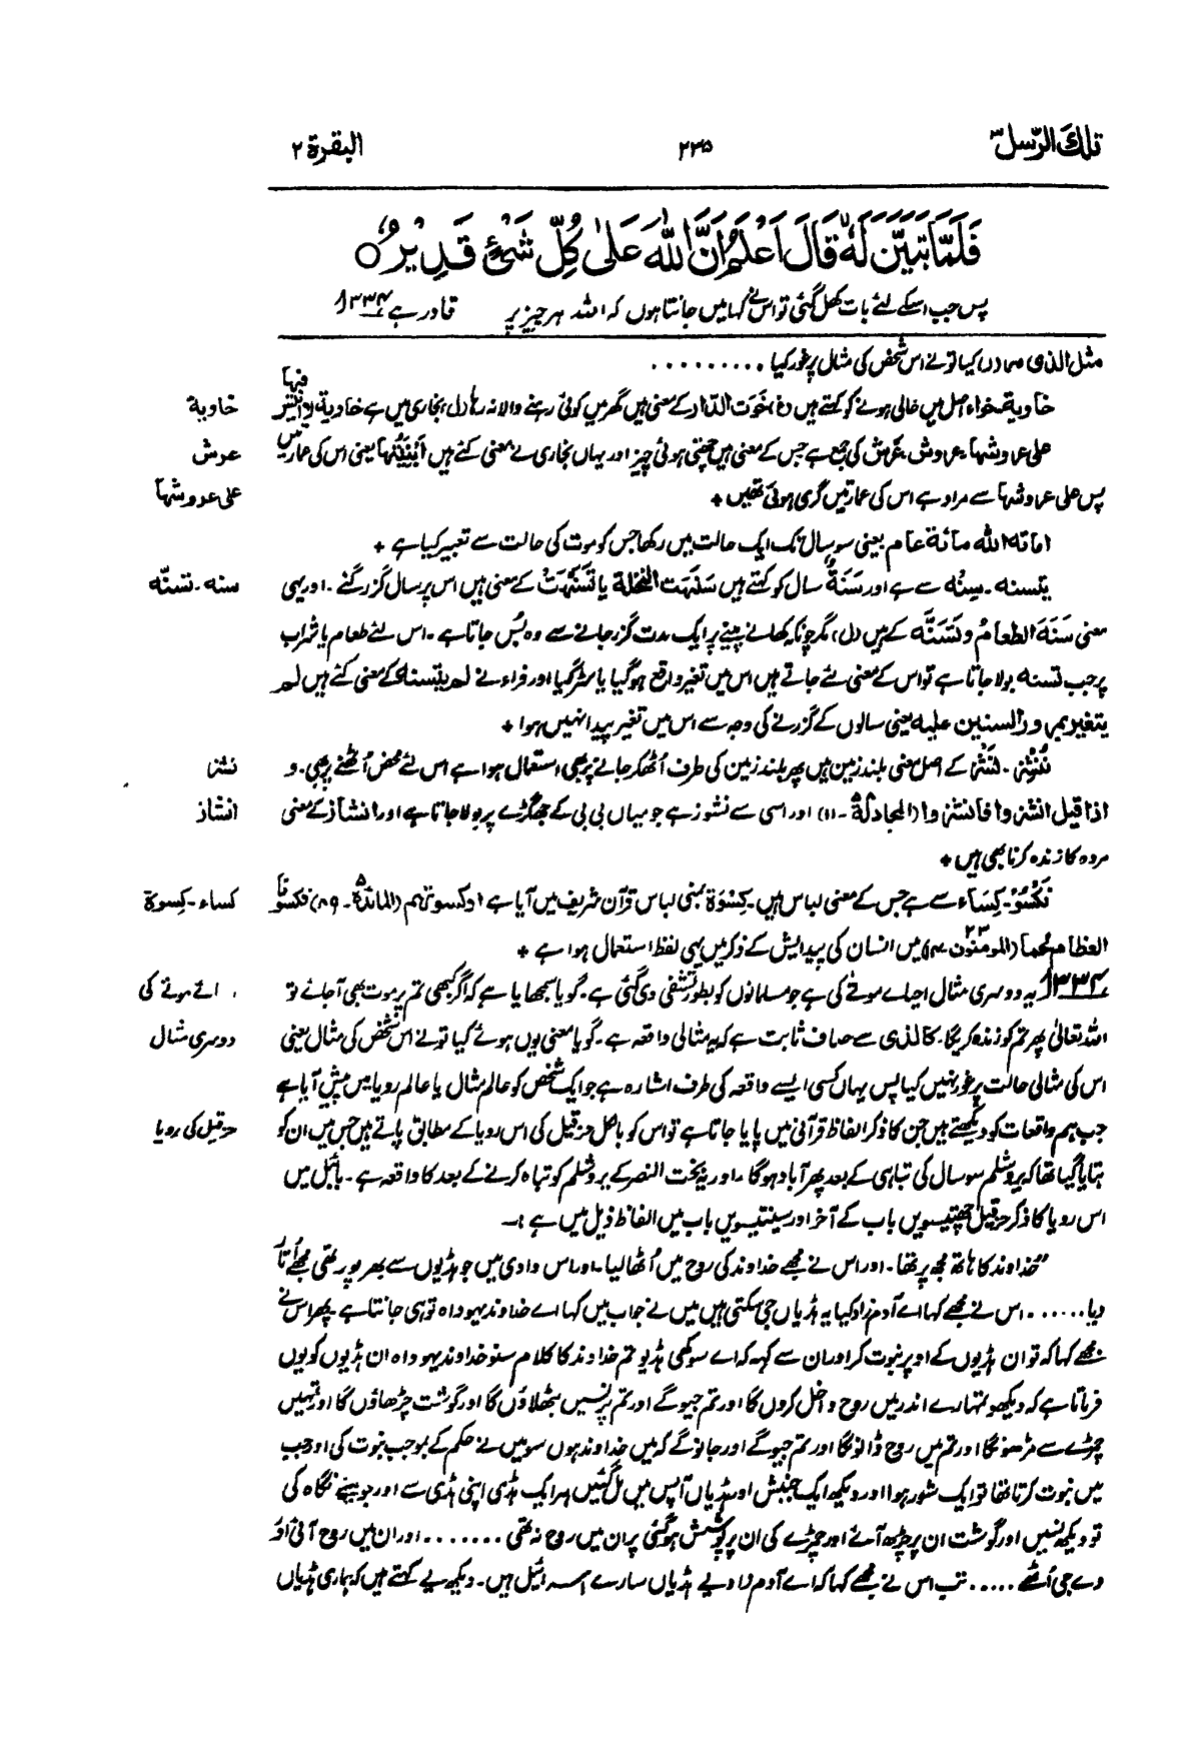 تلك الرّسل ۳
۲۳۵
البقرة ۲
فَلَمَّا تَبَیَّنَ لَهٗ ۙ قَالَ اَعْلَمُ اَنَّ اللّٰهَ عَلٰی کُلِّ شَیْءٍ قَدِیْرٌ ○
پس جب اسکے لئے بات کھل گئی تو اس نے کہا میں جانتا ہوں کہ اللہ ہر چیز پر قادر ہے ۳۳۴
مثل الذی مر دل کیا تو نے اس شخص کی مثال پر غور کیا ..........
خاویة۔ خواء اصل میں خالی ہونے کو کہتے ہیں (غ) خوت الدار کے معنی ہیں گھر میں کوئی رہنے والا نہ رہا (ل) بخاری میں ہے خاویة لا انیس فیها
خاویة
علی عروشها۔ عروش عرش کی جمع ہے جس کے معنی ہیں چھتی ہوئی چیز اور یہاں بخاری نے معنی کئے ہیں اَبْنِیَتُهَا یعنی اس کی عمارتیں
عرش
پس علی عروشها سے مراد ہے اس کی عمارتیں گری ہوئی تھیں +
علی عروشها
اماته الله مائة عام یعنی سو سال تک ایک حالت میں رکھا جس کو موت کی حالت سے تعبیر کیا ہے +
یتسنه۔ سنه سے ہے اور سَنَةٌ سال کو کہتے ہیں سَنَهَت النخلة یا تَسَنَّهَتْ کے معنی ہیں اس پر سال گزر گئے۔ اور یہی
سنه۔ تسنّه
معنی سَنَهَ الطعامُ و تَسَنَّه کے ہیں (ل) مگر چونکہ کھانے پینے پر ایک مدت گزر جانے سے وہ بُس جاتا ہے۔ اس لئے طعام یا شراب
پر جب تسنه بولا جاتا ہے تو اس کے معنی لئے جاتے ہیں اس میں تغیر واقع ہو گیا یا سڑ گیا اور فراء نے لم یتسنه کے معنی کئے ہیں لم
یتغیر بمرور السنین علیه یعنی سالوں کے گزرنے کی وجہ سے اس میں تغیر پیدا نہیں ہوا +
نُنْشِز۔ نَشْز کے اصل معنی بلند زمین ہیں پھر بلند زمین کی طرف اُٹھ کر جانے پر بھی استعمال ہوا ہے اس لئے محض اُٹھنے پر بھی۔ و
نشز
اذا قیل انشزوا فانشزوا (المجادلة ۵۸۔ ۱۱) اور اسی سے نشوز ہے جو میاں بی بی کے جھگڑے پر بولا جاتا ہے اور انشاز کے معنی
انشاز
مردہ کا زندہ کرنا بھی ہیں +
نَکْسُوْ۔ کِسَاء سے ہے جس کے معنی لباس ہیں۔ کِسْوَة بمعنی لباس قرآن شریف میں آیا ہے او کسوتهم (المائدة ۵۔ ۸۹) فکسونا
کساء۔ کِسوة
العظام لحماً (المومنون ۲۳۔ ۱۴) میں انسان کی پیدایش کے ذکر میں یہی لفظ استعمال ہوا ہے +
۳۳۴ یہ دوسری مثال احیاے موتٰے کی ہے جو مسلمانوں کو بطور تشفی دی گئی ہے۔ گویا سمجھایا ہے کہ اگر کبھی تم پر موت بھی آجائے تو
موتے کی
اللہ تعالیٰ پھر تم کو زندہ کریگا۔ کالذی سے صاف ثابت ہے کہ یہ مثالی واقعہ ہے۔ گویا معنی یوں ہوئے کیا تو نے اس شخص کی مثال یعنی
دوسری مثال
اس کی مثالی حالت پر غور نہیں کیا پس یہاں کسی ایسے واقعہ کی طرف اشارہ ہے جو ایک شخص کو عالم مثال یا عالم رویا میں پیش آیا ہے
جب ہم واقعات کو دیکھتے ہیں جن کا ذکر الفاظ قرآنی میں پایا جاتا ہے تو اس کو بالکل حزقیل کی اس رویا کے مطابق پاتے ہیں جس میں ان کو
حزقیل کی رویا
بتایا گیا تھا کہ یروشلم سو سال کی تباہی کے بعد پھر آباد ہوگا۔ اور یہ بخت النصر کے یروشلم کو تباہ کرنے کے بعد کا واقعہ ہے۔ بائبل میں
اس رویا کا ذکر حزقیل چھتیسویں باب کے آخر اور سینتیسویں باب میں الفاظ ذیل میں ہے :۔
"خداوند کا ہاتھ مجھ پر تھا۔ اور اس نے مجھے خداوند کی روح میں اُٹھا لیا۔ اور اس وادی میں جو ہڈیوں سے بھرپور تھی مجھے اُتار
دیا...... اس نے مجھے کہا اے آدم زاد کیا یہ ہڈیاں جی سکتی ہیں میں نے جواب میں کہا اے خداوند یہوداہ تو ہی جانتا ہے۔ پھر اس نے
مجھے کہا کہ تو ان ہڈیوں کے اوپر نبوت کر اور ان سے کہہ کہ اے سوکھی ہڈیو تم خداوند کا کلام سنو خداوند یہوداہ ان ہڈیوں کو یوں
فرماتا ہے کہ دیکھو تمہارے اندر میں روح داخل کروں گا اور تم جیو گے اور تم پر نسیں بٹھلاؤں گا اور گوشت چڑھاؤں گا اور تمہیں
چمڑے سے مڑھونگا اور تم میں روح ڈالونگا اور تم جیو گے اور جانو گے کہ میں خداوند ہوں سو میں نے حکم کے بموجب نبوت کی اور جب
میں نبوت کرتا تھا تو ایک شور ہوا اور دیکھ ایک جنبش اور ہڈیاں آپس میں مل گئیں ہر ایک ہڈی اپنی ہڈی سے اور جو میں نے نگاہ کی
تو دیکھ نسیں اور گوشت ان پر چڑھ آئے اور چمڑے کی ان پر پوشش ہو گئی پر ان میں روح نہ تھی ........ اور ان میں روح آئی اور
وے جی اُٹھے ..... تب اس نے مجھے کہا کہ اے آدم زاد یے ہڈیاں سارے اسرائیل ہیں۔ دیکھ یے کہتے ہیں کہ ہماری ہڈیاں